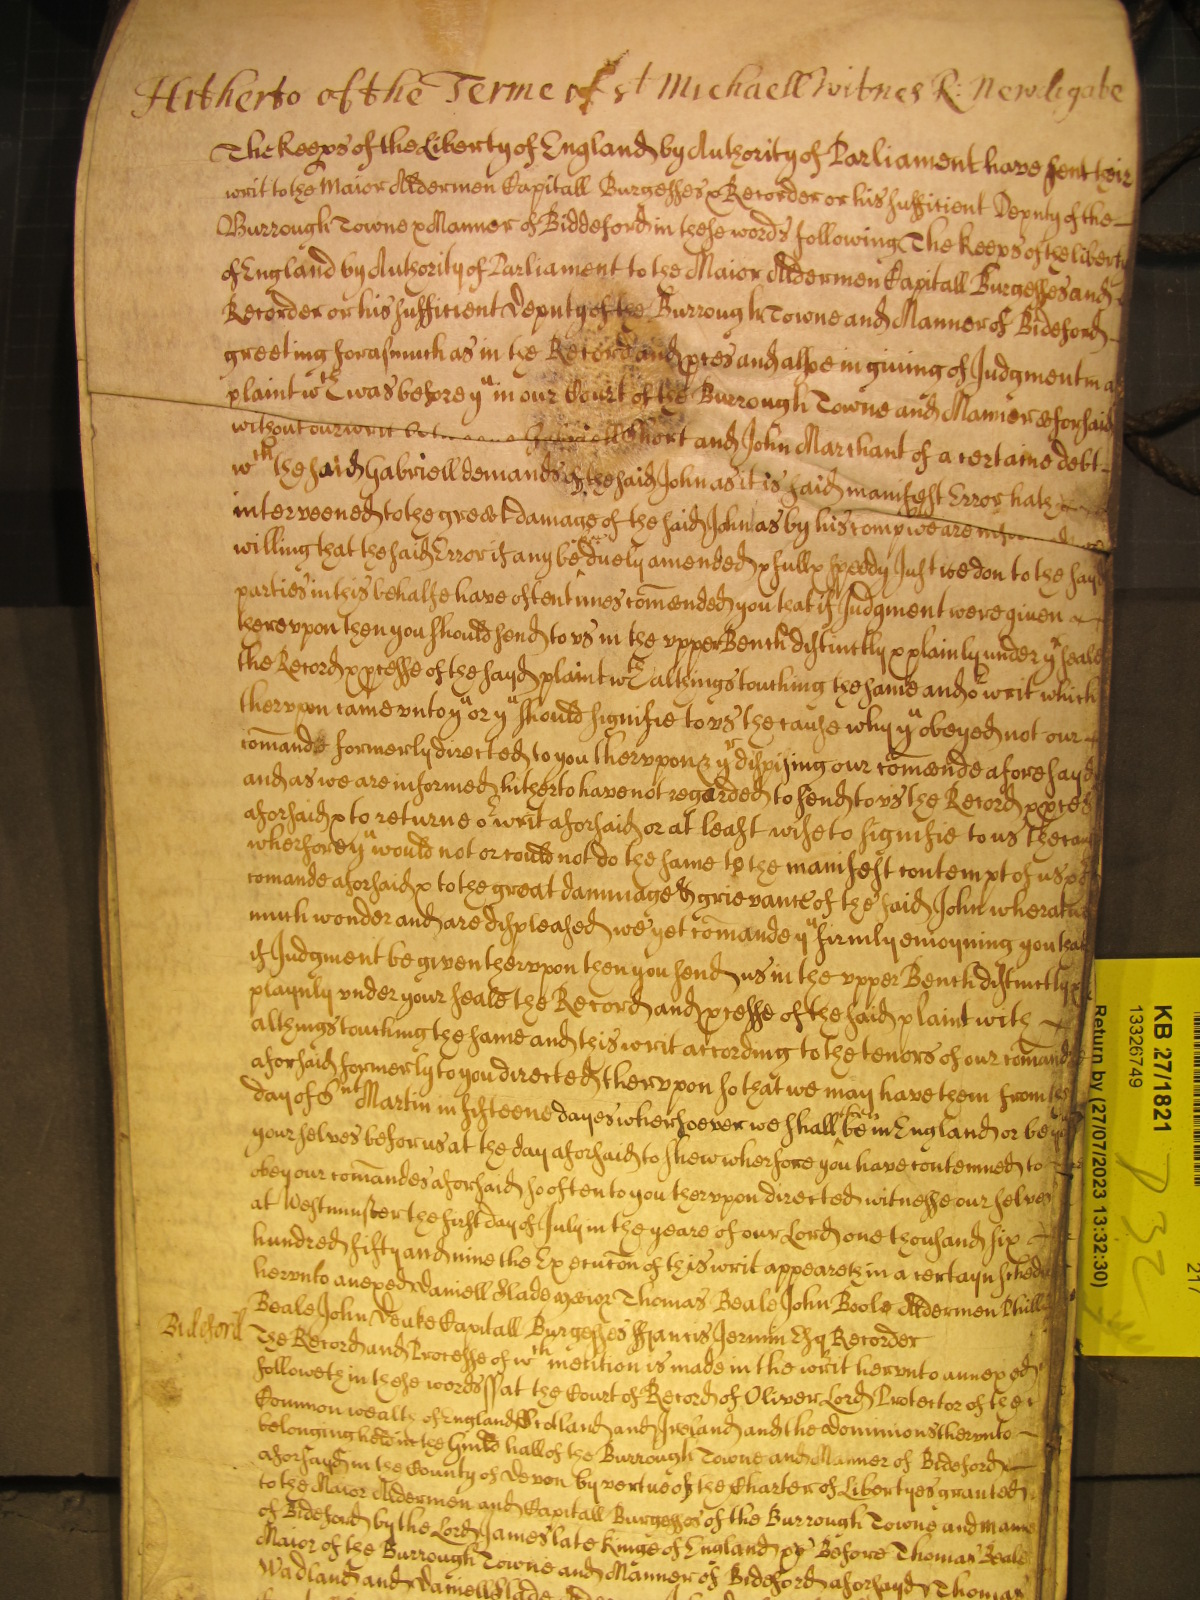 Hitherto of the Terme of st Michaell witnes R: Newdigate
The Keeps of the Liberty of England by Authority of Parliament have sent their
writ to the Maior Aldermen Capitall Burgesses & Recorder or his sufficient Deputy of the
Burrough Towne & Manner of Biddeford in these words following The Keeps of the liberty
of England by Authority of Parliament to the Maior Aldermen Capitall Burgesses and
Recorder or his sufficient Deputy of the Burrough Towne and Manner of Bideford
greeting forasmuch as in the Record and pces and alsoe in giving of Judgment in a
plaint wch was before yu in our Court of the Burrough Towne and Manner aforsaid
without our writ betweene Gabriell Short and John Marchant of a certaine debt
wch the said Gabriell demands of the said John as it is said manifest Error hath
interveened to the great damage of the said John as by his compl we are
willing that the said Error if any be duely amended & full & speedy Justice don to the sayd
parties in this behalfe have oftentimes comended you that if Judgment were given
therevpon then you should send to vs in the vpper Bench distinctly & plainly under yr seale
the Record & pcesse of the sayd plaint wth all things touching the same and or writ which
thervpon came vnto yu or yu should signifie to vs the cause why yu obeyed not our
comande formerly directed to you thervpon & yu dispising our comeende aforesayd
and as we are informed hitherto have not regarded to send to vs the Record & pces
aforsaid & to returne or writ aforsaid or at least wise to signifie to us the cause
wherfore yu would not or could not do the same to the manifest contempt of us &
comande aforsaid & to the great dammage & grievance of the said John wherat we
much wonder and are displeased we yet comande yu firmly enioyning you that
if Judgment be given thervpon then you send us in the vpper Bench distinctly &
playnly vnder your seale the Record and pcesse of the said plaint with
all things touching the same and this writ according to the tenors of our comande
aforsaid formerly to you directed thervpon so that we may have them from the
day of Snt Martin in fifteene dayes whersoever we shall then be in England or be
your selves before us at the day aforsaid to shew wherfore you have contemned to
obey our comandes aforsaid so often to you thervpon directed witnesse our selves
at Westminster the first day of July in the yeare of our Lord one thousand six
hundred fifty and nine the Execucon of this writ appeareth in a certayn schedule
hervnto anexed Daniell Slade Maior Thomas Beale John Boole Aldermen Phillip
Beale John Deake Capitall Burgesses ffrancis Jermin Esq Recorder
Bideford The Record and Processe of wch mention is made in the writ hervnto annexed
followeth in these words ss at the Court of Record of Oliver Lord Protector of the
Common wealth of England Scotland and Ireland and the dominions thervnto
belonging held in the Guild hall of the Burrough Towne and Manner of Bideford
aforsayd in the County of Devon by vertue of the Charter of Libertyes granted
to the Maior Aldermen and Capitall Burgesses of the Burrough Towne and Manner
of Bideford by the Lord James late Kinge of England &c Before Thomas Beale
Maior of the Burrough Towne and Manner of Bideford aforsayd Thomas
Wadland and Daniell Slade
KB 27/1821
13326749
Return by (27/07/2023 13:32:30)